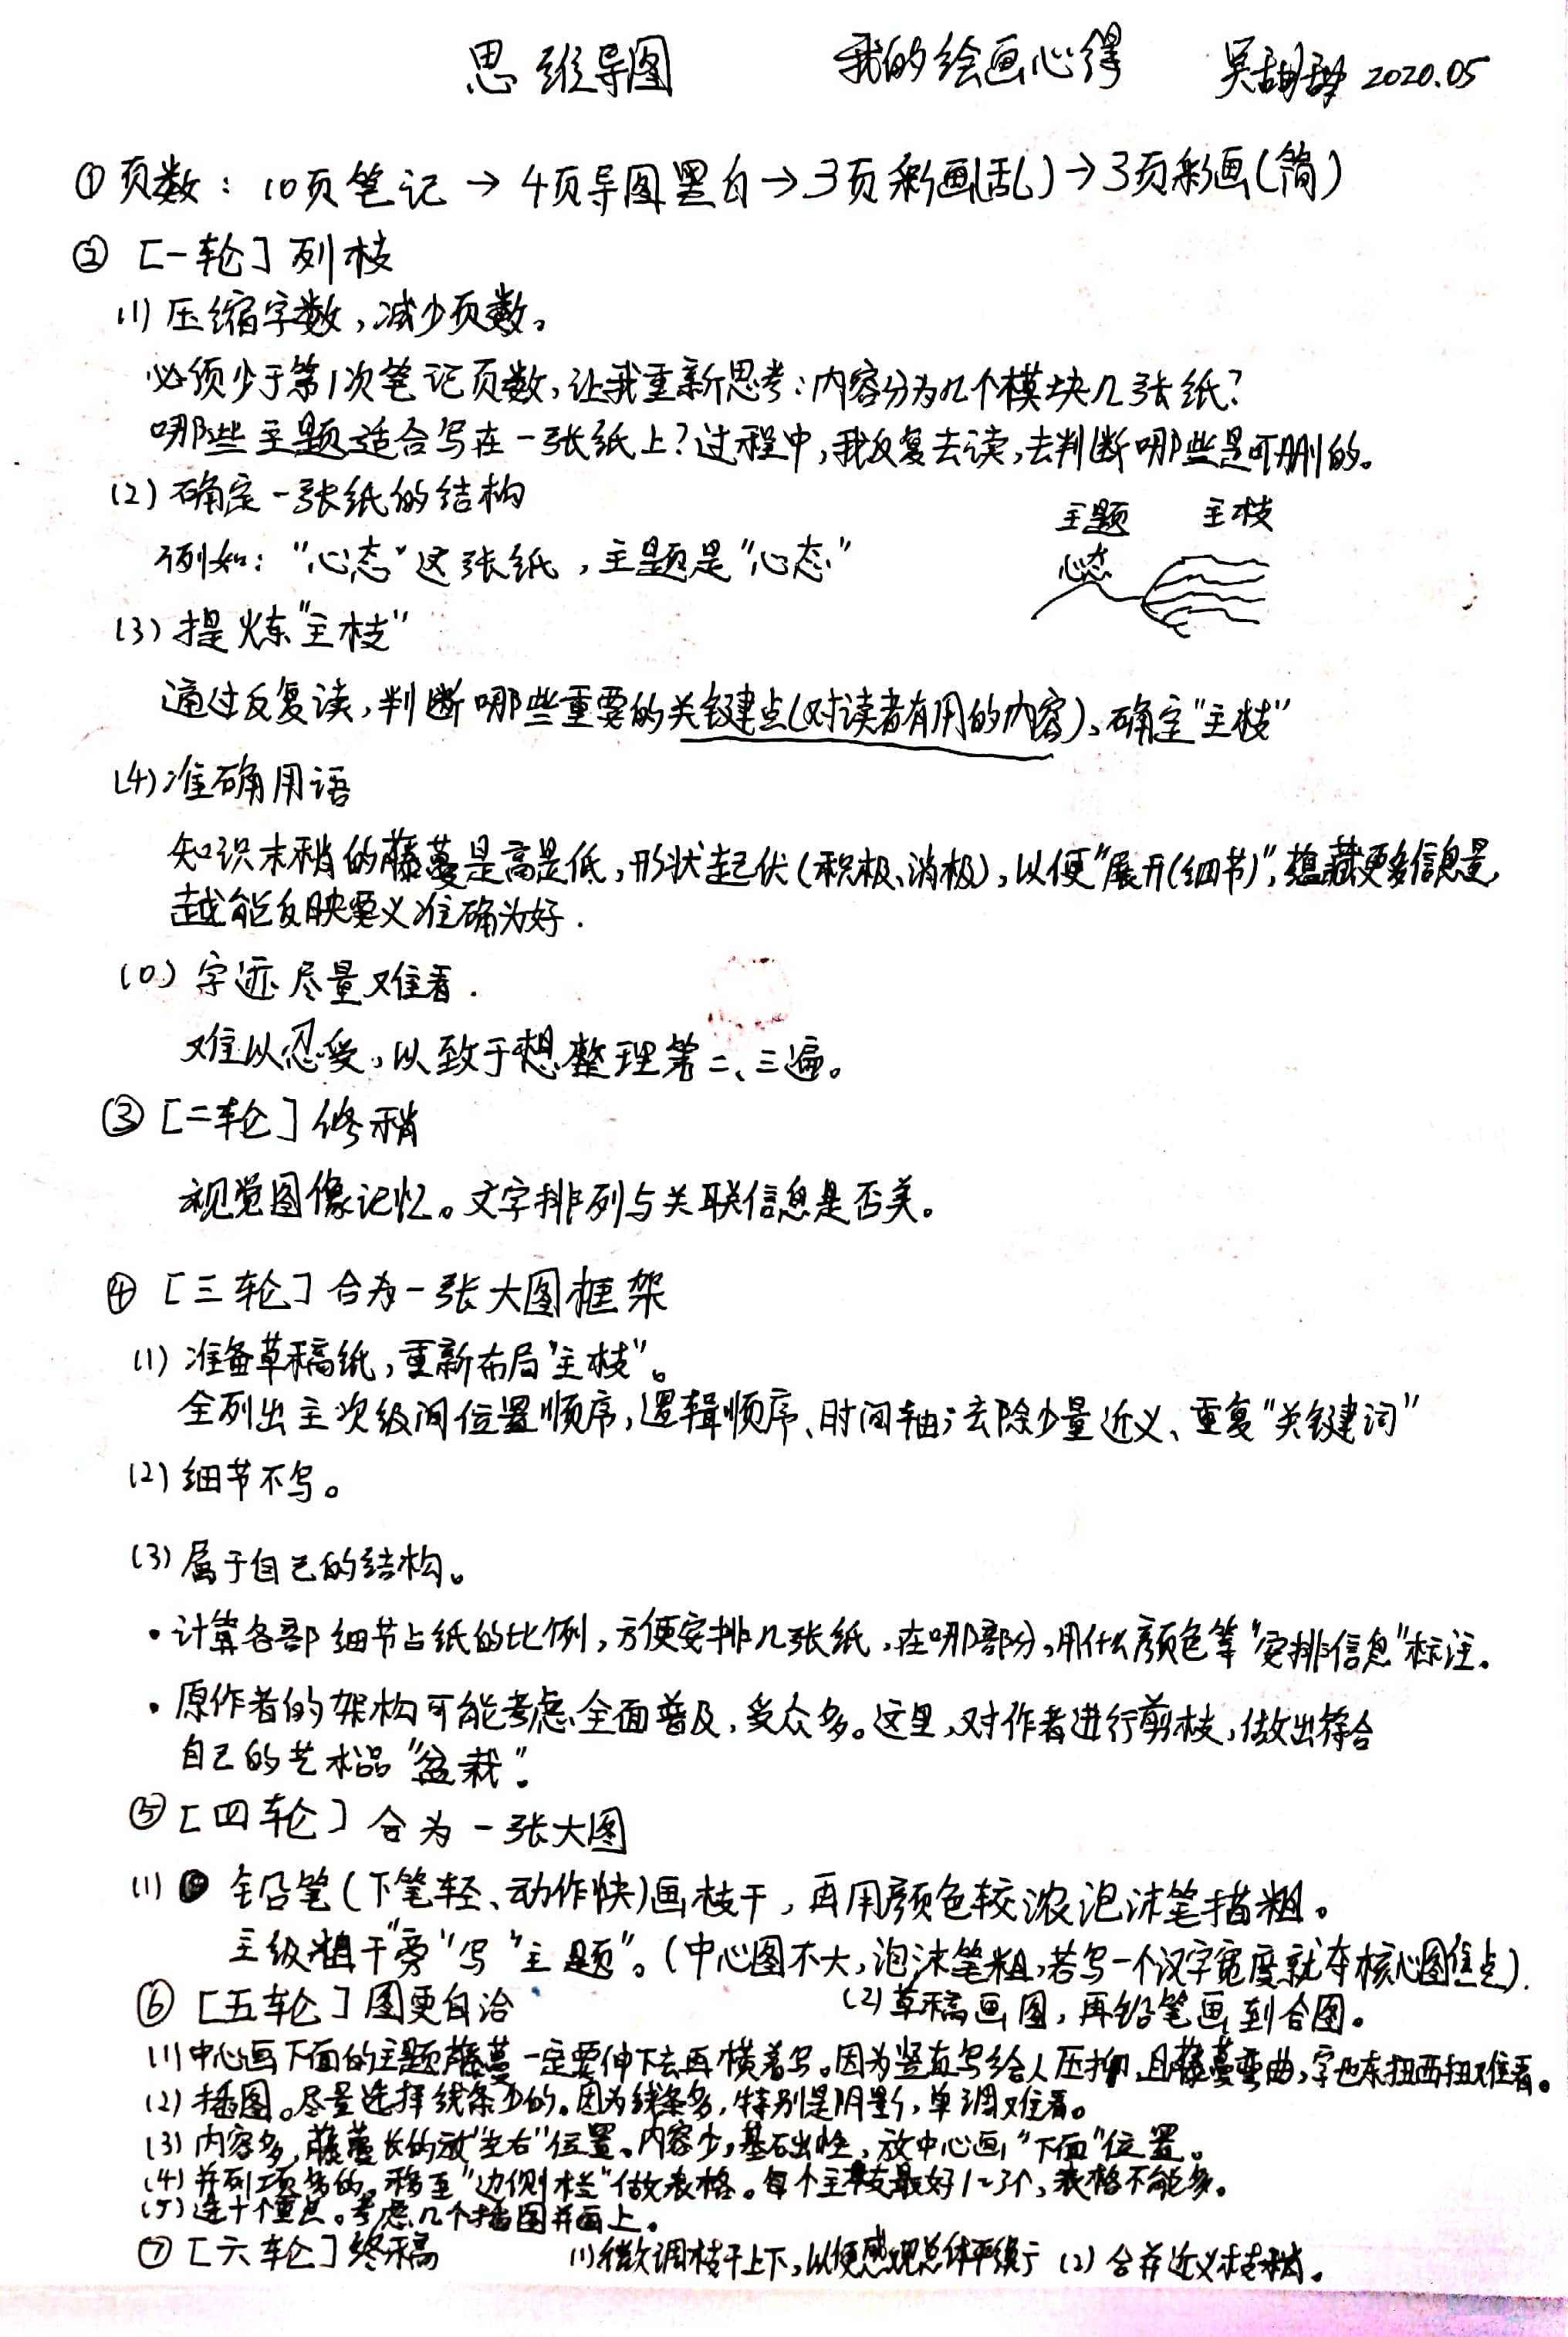 思维导图 我的绘画心得 吴甜甜 2020.05
① 页数：10页笔记→4页导图黑白→3页彩画(乱)→3页彩画(简)
② [一轮]列枝
(1) 压缩字数，减少页数。
必须少于第1次笔记页数，让我重新思考：内容分为几个模块几张纸？
哪些主题适合写在一张纸上？过程中，我反复去读，去判断哪些是可删的。
(2) 确定一张纸的结构
主题 主枝
例如："心态"这张纸，主题是"心态"
心态
(3) 提炼"主枝"
通过反复读，判断哪些重要的关键点(对读者有用的内容)、确定"主枝"
(4) 准确用语
知识末稍的藤蔓是高是低，形状起伏(积极、消极)，以便"展开(细节)"，蕴藏更多信息量，
越能反映要义准确为好.
(0) 字迹尽量难看.
难以忍受，以致于想整理第二、三遍。
③ [二轮]修稍
视觉图像记忆。文字排列与关联信息是否美。
④ [三轮]合为一张大图框架
(1) 准备草稿纸，重新布局"主枝"。
全列出主次级间位置顺序，逻辑顺序、时间轴；去除少量近义、重复"关键词"
(2) 细节不写。
(3) 属于自己的结构。
·计算各部细节占纸的比例，方便安排几张纸，在哪部分，用什么颜色等"安排信息"标注。
·原作者的架构可能考虑全面普及，受众多。这里，对作者进行剪枝，做出符合
自己的艺术品"盆栽"。
⑤ [四轮]合为一张大图
(1) 铅笔(下笔轻、动作快)画枝干，再用颜色较浓泡沫笔描粗。
主级粗干"旁"写"主题"。(中心图不大，泡沫笔粗，若写一个汉字宽度就夺核心图焦点).
(2) 草稿画图，再铅笔画到合图。
⑥ [五轮]图更自洽
(1) 中心画下面的主题藤蔓一定要伸下去再横着写。因为竖直写给人压抑，且藤蔓弯曲，字也东扭西扭难看。
(2) 插图。尽量选择线条少的。因为线条多，特别是阴影，单调难看。
(3) 内容多，藤蔓长的放"左右"位置。内容少，基础性，放中心画"下面"位置。
(4) 并列项多的，移至"边侧栏"做表格。每个主枝最好1~3个，表格不能多。
(5) 选十个重点。考虑几个插图并画上。
⑦ [六轮]终稿 (1) 微调枝干上下，以便感观总体平衡 (2) 合并近义枝稍。